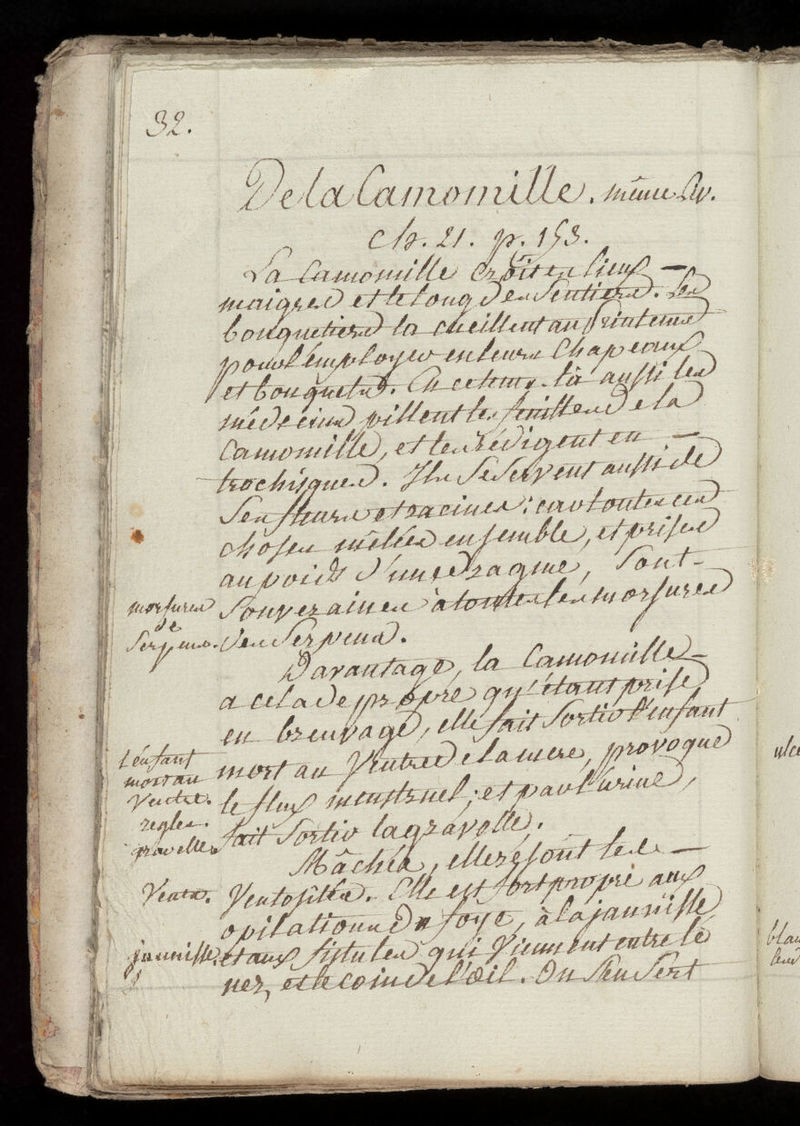 32.
De la Camomille. même liv.
ch. 21. p. 153.
La Camomille croit en lieux —
maigres et le long des Sentiers. Les
bouquetiers la cueillent au Printems
pour l'employer en leurs Chapeaux
et bouquets. En ce tems là aussi les
médecins pillent les feuilles de la
Camomille, et les rédigent en —
trochisques. Ils se servent aussi de
Ses fleurs et racines : car toutes ces
choses mêlées ensemble, et prises
au poids d'une dragme, sont
Souveraines à toutes les morsures
des Serpens.
morsures
de
Serpens.
Davantage, la Camomille —
a cela de propre qu'étant prise
en breuvage, elle fait sortir l'enfant
mort au Ventre de la mere, provoque
le flux menstruel ; et par l'urine,
fait Sortir la gravelle.
l'enfant
mort au
Ventre.
regles.
gravelle
Mâchée, elle résout les —
Ventosités. Elle est fort propre aux
opilations du foye, à la jaunisse,
et aux fistules qui viennent entre le
nez, et le coin de l'œil. On s'en sert
Vents.
jaunisse.
ulce
blan
leur